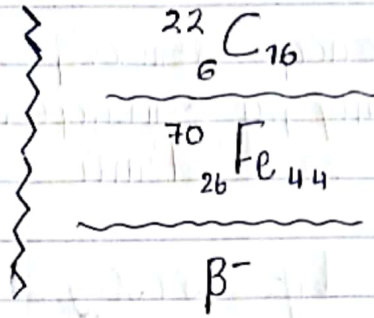 ²²₆C₁₆
⁷⁰₂₆Fe₄₄
β⁻